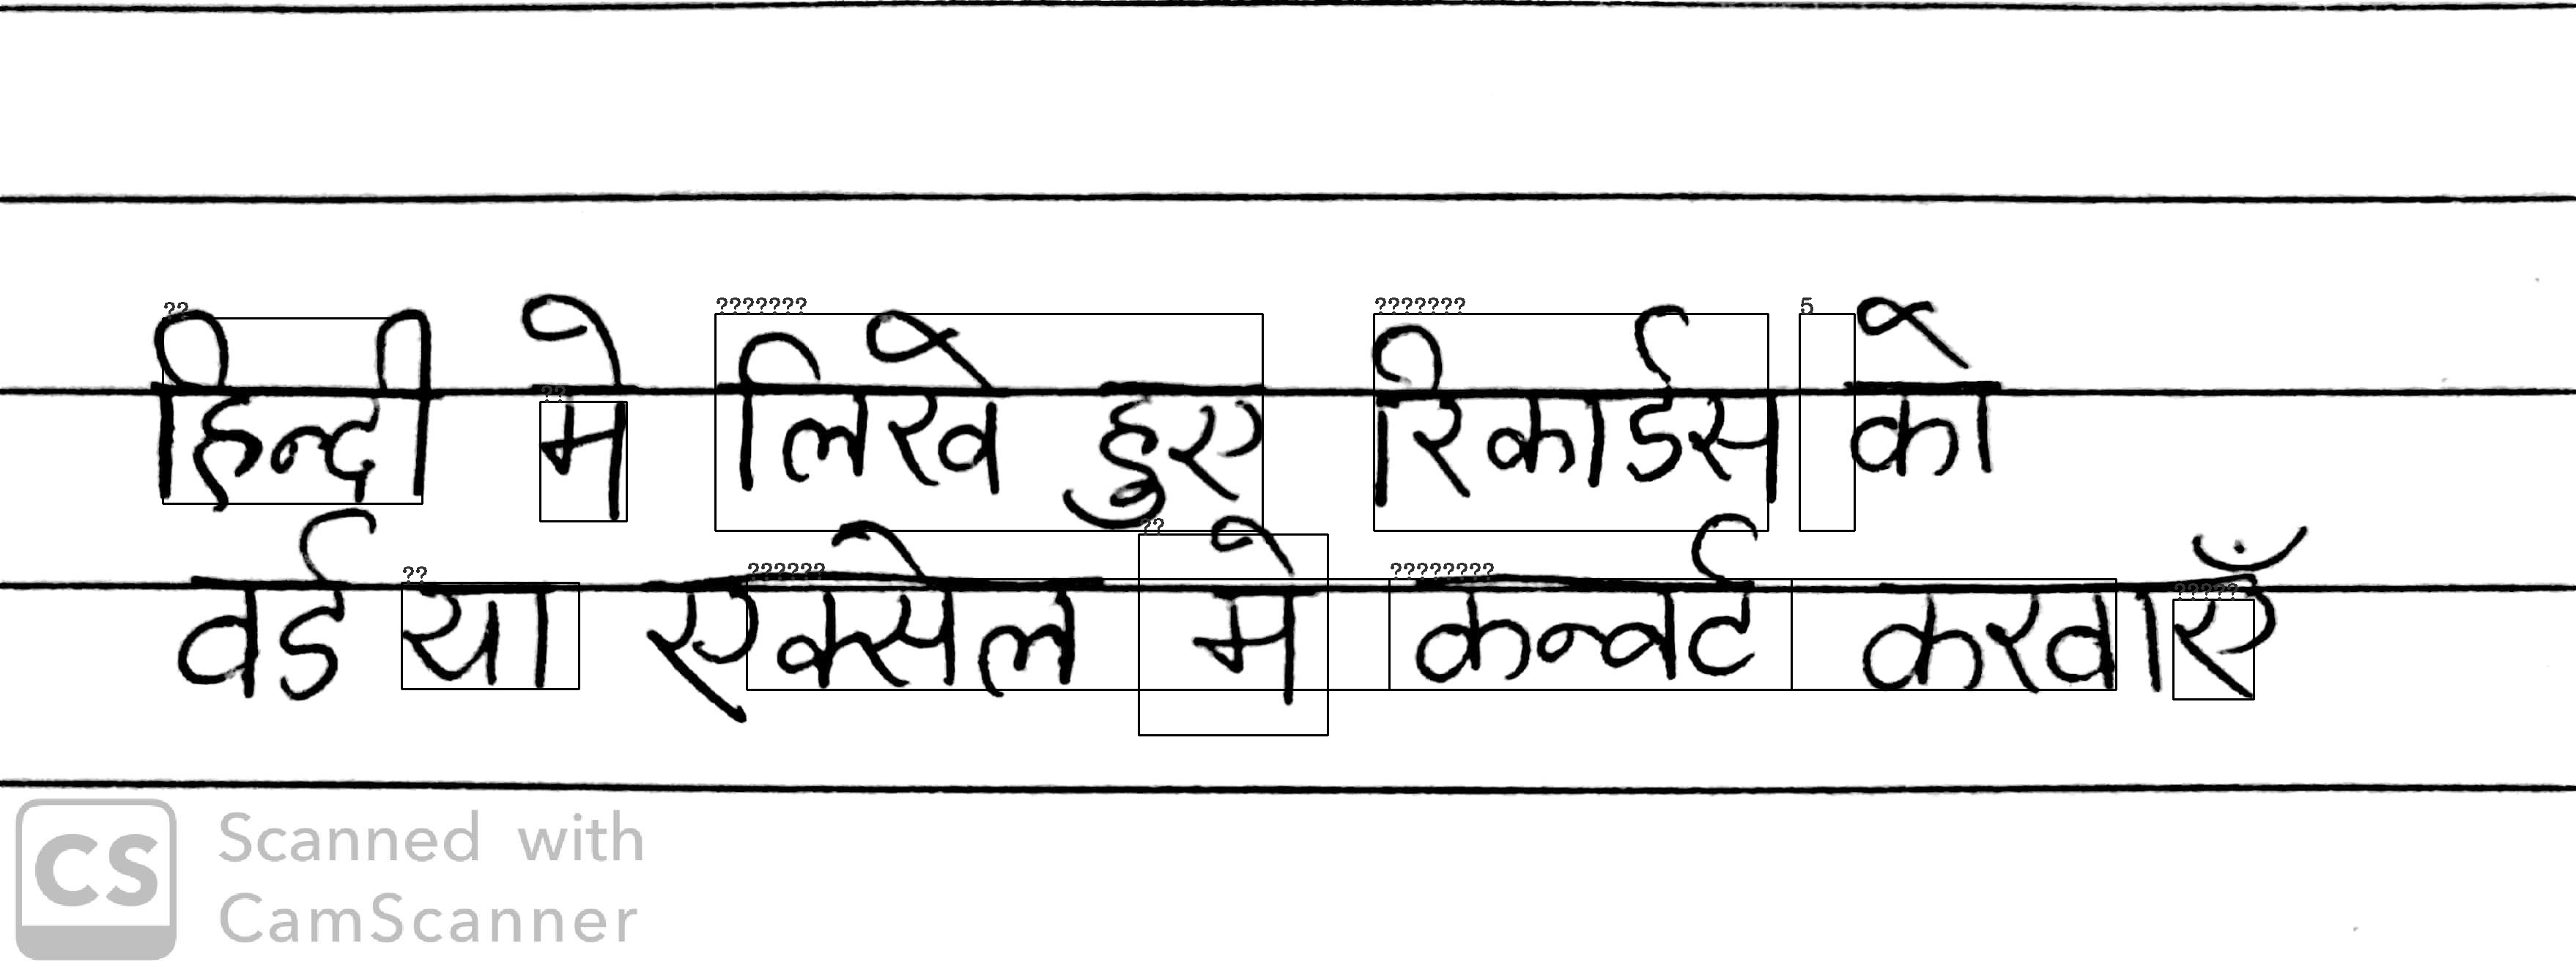 हिन्दी मे लिखे हुए रिकार्डस को
वर्ड या एक्सेल मे कन्वर्ट करवाएँ
??
??
???????
???????
5
??
??????
??
????????
?????
CS Scanned with
CamScanner